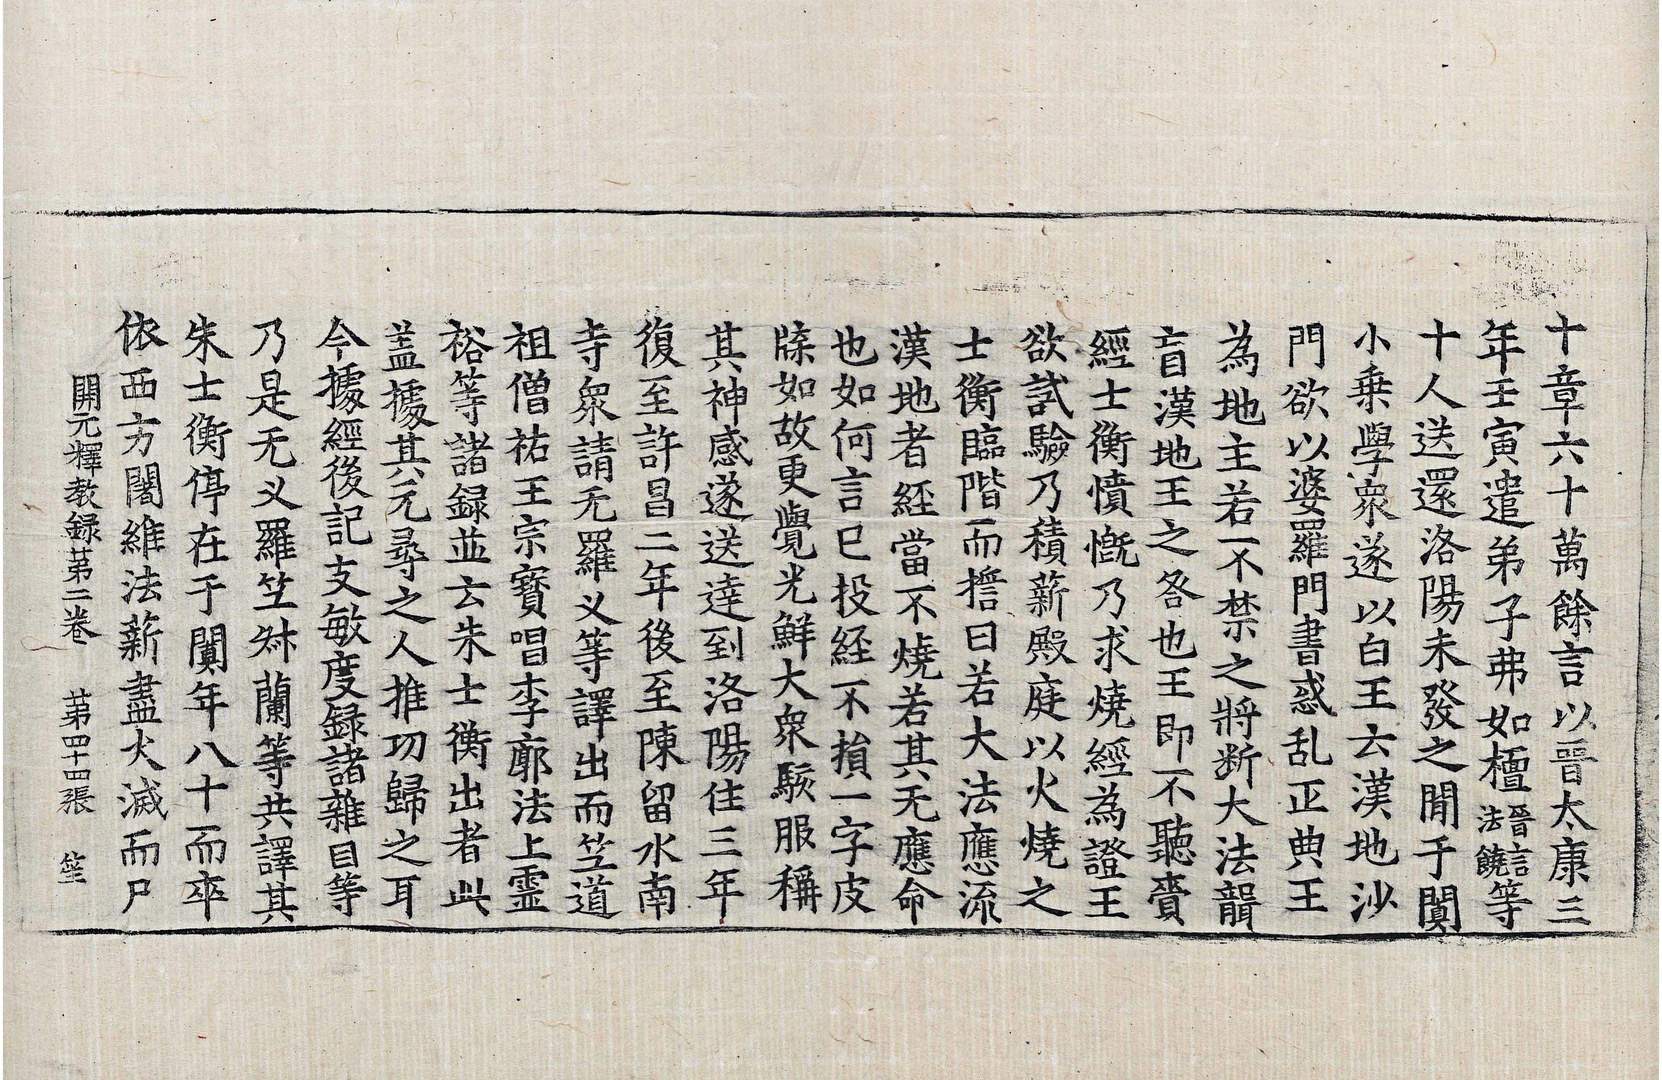 十章六十萬餘言以晉太康三
年壬寅遣弟子弗如檀晉言法饒等
十人送還洛陽未發之閒于闐
小乗學衆遂以白王云漢地沙
門欲以婆羅門書惑乱正典王
為地主若不禁之將断大法聾
盲漢地王之咎也王即不聽賷
經士衡憤慨乃求燒經為證王
欲試驗乃積薪殿庭以火燒之
士衡臨階而誓曰若大法應流
漢地者經當不燒若其无應命
也如何言已投経不損一字皮
牒如故更覺光鮮大衆駭服稱
其神感遂送達到洛陽住三年
復至許昌二年後至陳留水南
寺衆請无羅义等譯出而笁道
祖僧祐王宗寳唱李廓法上靈
裕等諸録並云朱士衡出者此
盖據其元尋之人推功歸之耳
今據經後記支敏度録諸雜目等
乃是无义羅笁叔蘭等共譯其
朱士衡停在于闐年八十而卒
依西方闍維法薪盡火滅而尸
開元釋教録苐二卷　苐四十四張　笙